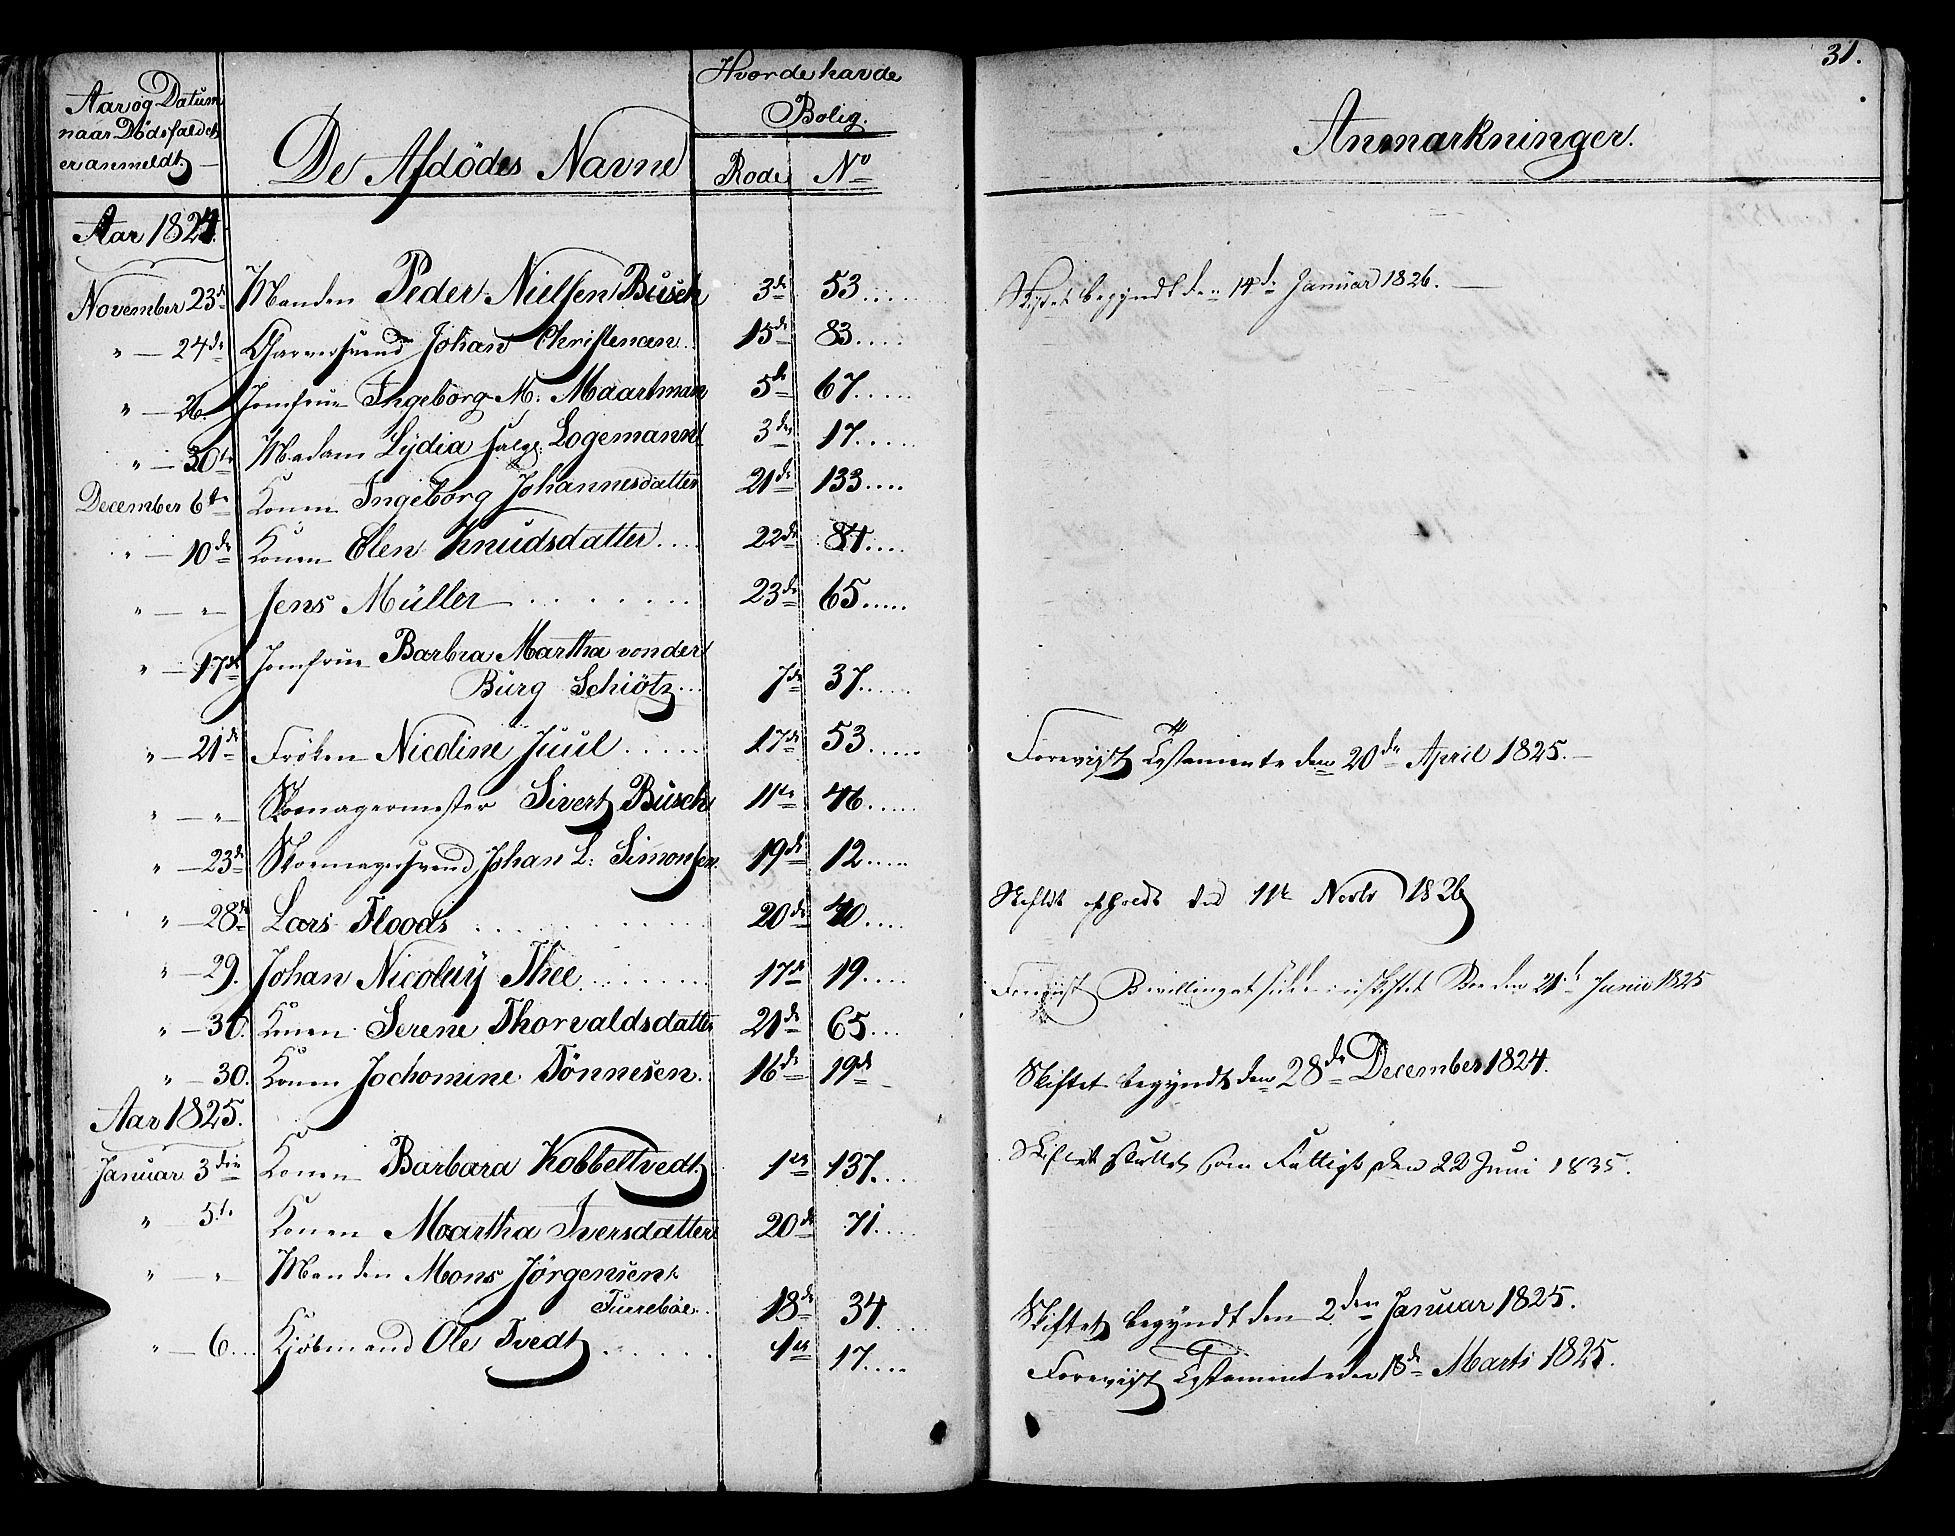 31.
Aar og Datum
naar Dødsfaldet
er anmeldt.
De Afdödes Navne
Hvor de havde
Bolig.
Rode No
Anmærkninger.
Aar 1824.
November 23de Manden Peder Nielsen Büsch 3de 53..... Skiftet begyndt den 14de Januar 1826.
" — 24de Garversvend Johan Christensen. 15de 83.....
" — 26. Jomfrue Ingeborg M. Maartman 5te 67.....
" — 30te Madam Lydia salg. Logemann 3die 17.....
December 6te Konen Ingeborg Johannesdatter 21de 133....
" — 10de Konen Elen Knudsdatter.... 22de 84.....
" — " — Jens Müller ........ 23de 65.....
" — 17de Jomfrue Barbra Martha von der
Bürg Schiötz... 7de 37.....
" — 21de Fröken Nicoline Juul ..... 17de 53..... Foreviist Testamente den 20de April 1825.
" — " — Skomagermester Sivert Büsch 11te 46.....
" — 23de Skomagersvend Johan L. Simonsen. 19de 12.....
" — 28de Lars Floods ........ 20de 40.... Skiftet Novbr 1826
" — 29. Johan Nicolay Thee....... 17de 19.... Bevilling at sidde i uskiftet Boe den 21de Junii 1825
" — 30. Konen Serene Thorvaldsdatter 21de 65...
" — 30. Konen Jochomine Tönnesen. 16de 19de Skiftet begyndt den 28de December 1824.
Aar 1825.
Januar 3die Konen Barbara Kobbeltvedt 1ste 137.... Skiftet sluttet som Fattigt den 22 Juni 1835.
" — 5te Konen Martha Iversdatter 20de 71.....
" — " — Manden Mons Jörgensen
Turreböe... 18de 34. Skiftet begyndt den 2den Januar 1825.
" — 6... Kjöbmand Ole Tvedt ...... 1ste 17.... Foreviist Testamente den 18de Marts 1825.